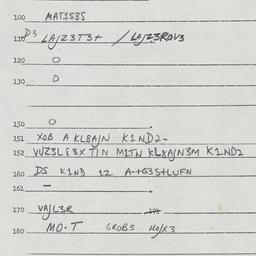 100 MAT1S3S
110 D3 LAJZ3T3+ / LAJZ3ROV3
120 O
130 O
150 O
151 XOB A KL8AJN K1ND2-
152 VUZ3L83X T1N M1TN KL8AJN3M K1ND2
160 DS K1ND 12 A-+G3S+LUFN
161 —
170 VAJL3R
180 MO.T GROB3 HOJX3